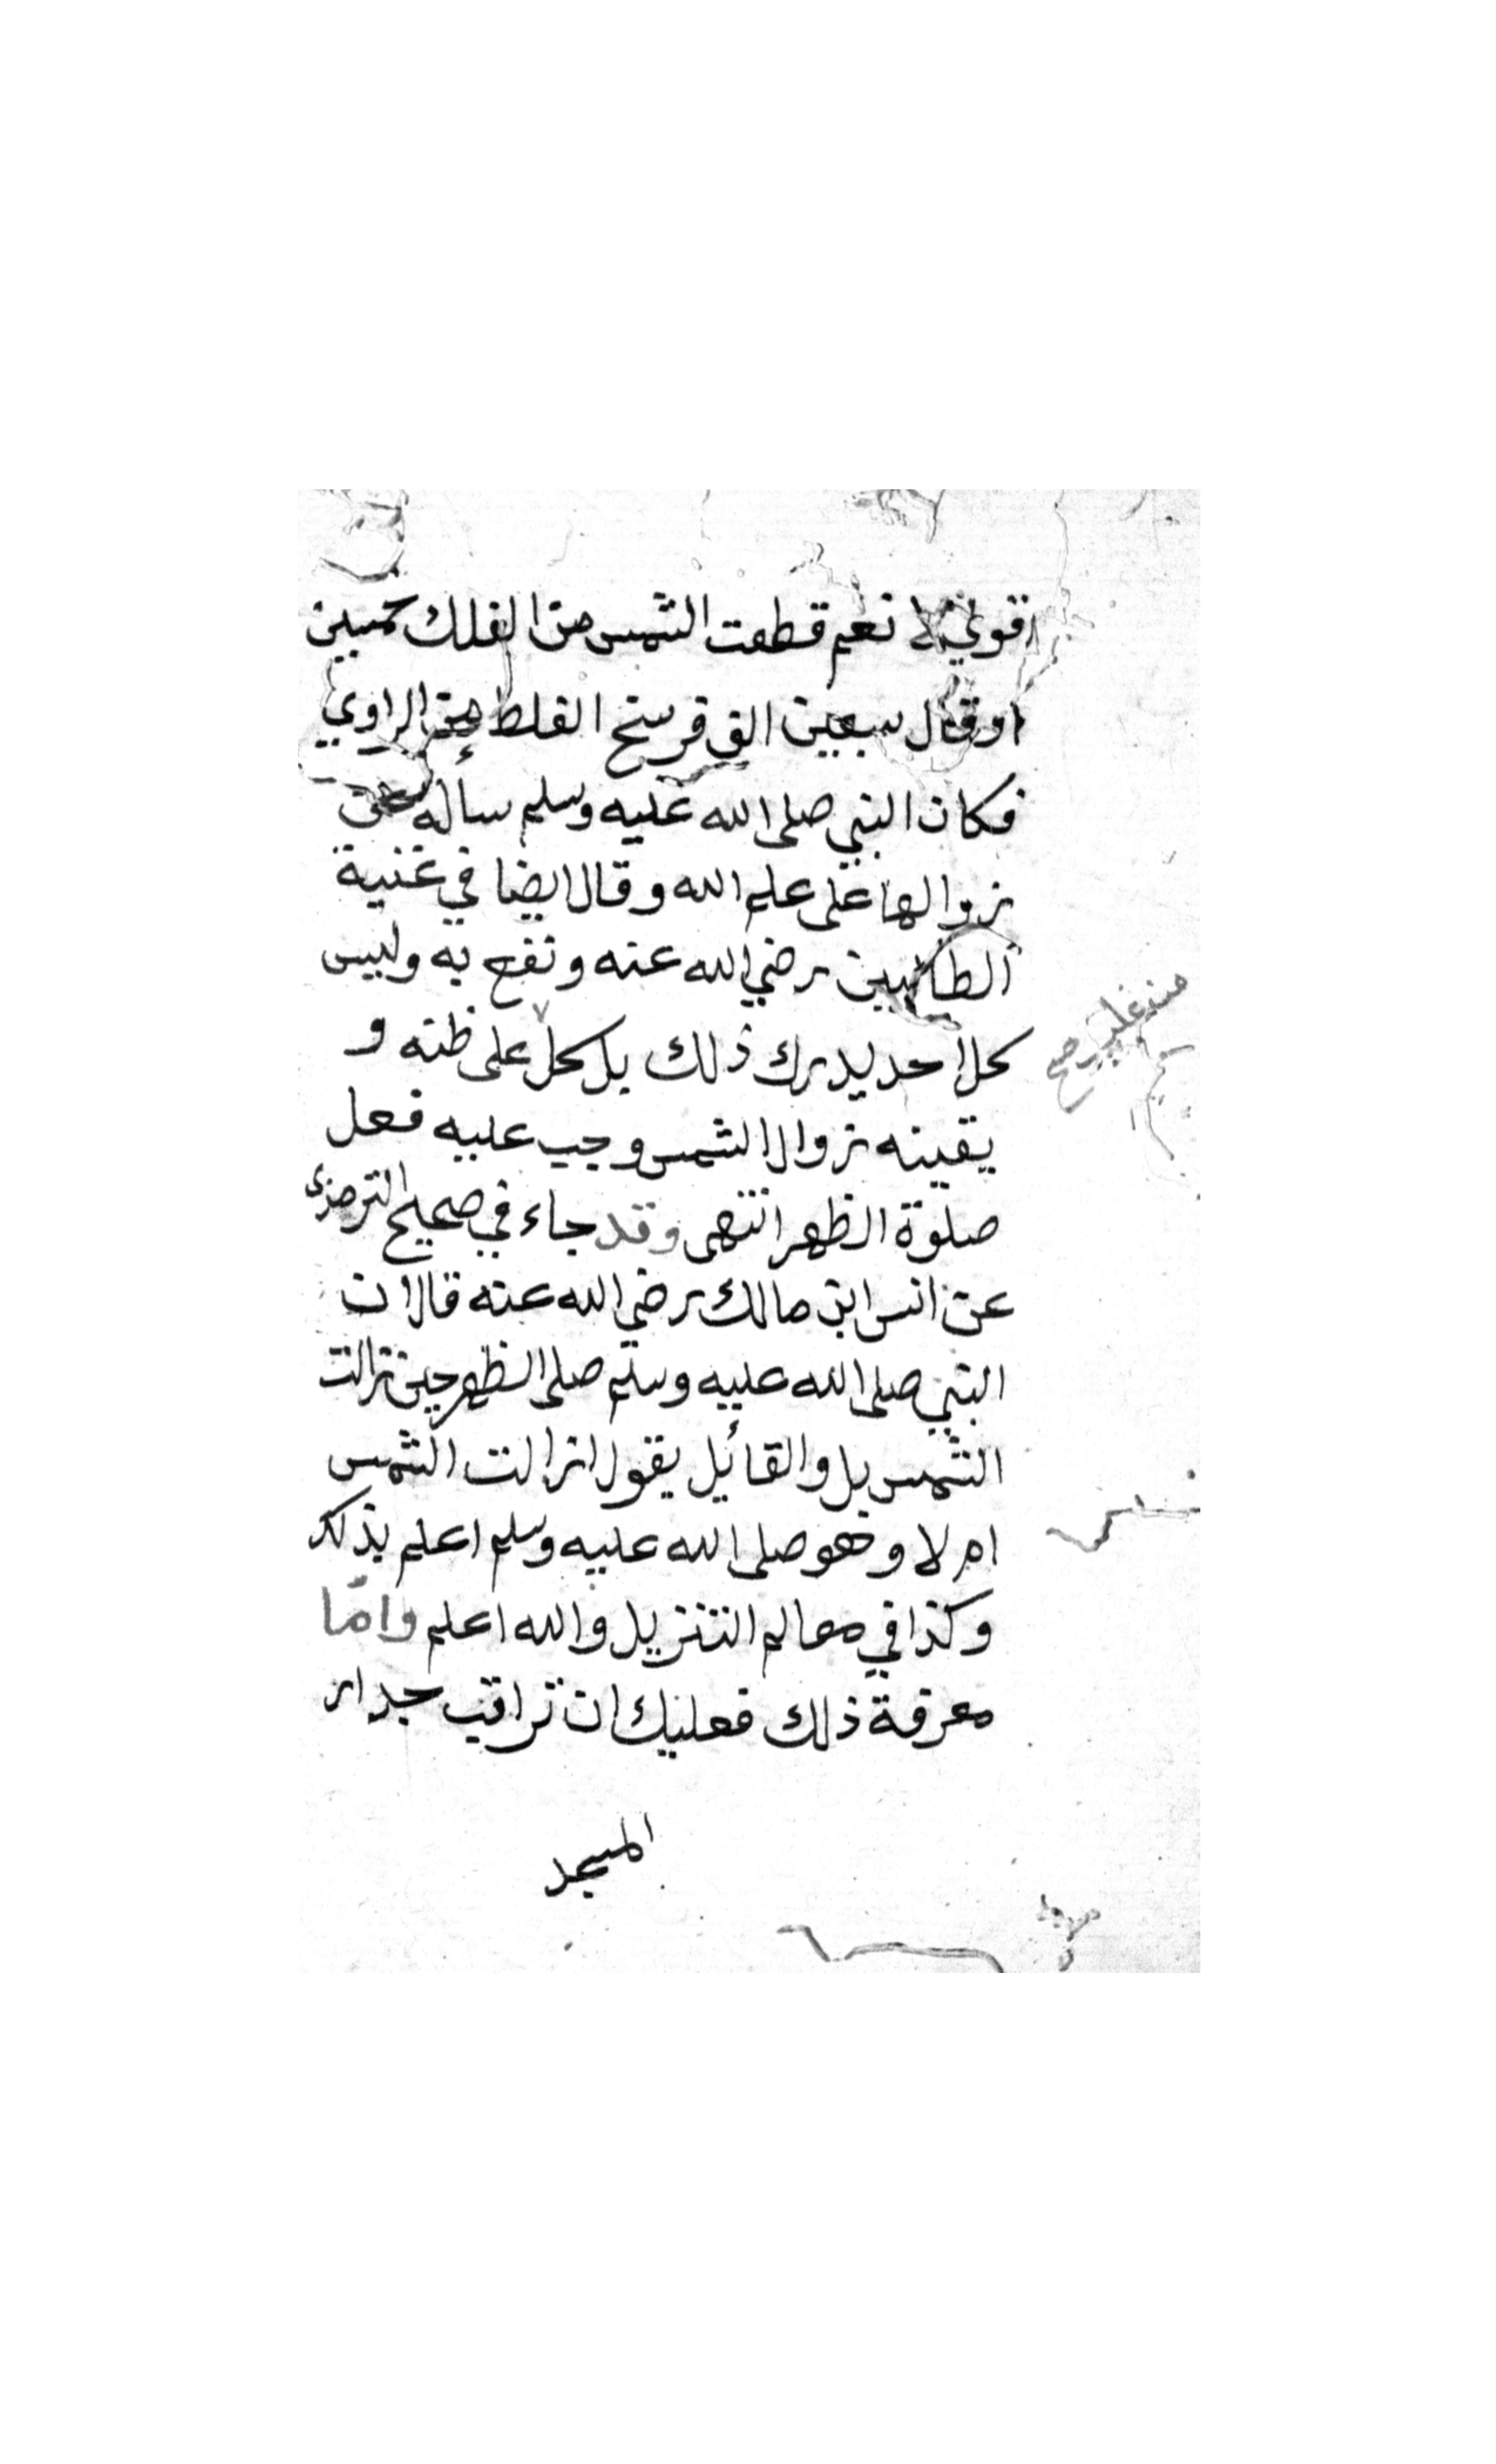 اقولي لا نعم قطعت الشمس من الفلك خمسين
او قال سبعين الف فرسخ الغلط من الراوي
فكان النبي صلى الله عليه وسلم سأله عن
زوالها على علم الله وقال ايضا في غنية
الطالبين رضي الله عنه ونفع به وليس
كل احد يدرك ذلك بل كل على ظنه و
من غلب صح
يقينه زوال الشمس وجب عليه فعل
صلوة الظهر انتهى وقد جاء في صحيح الترمذي
عن انس ابن مالك رضي الله عنه قال ان
النبي صلى الله عليه وسلم صلى الظهر حين زالت
الشمس بل والقائل يقول ازالت الشمس
ام لا وهو صلى الله عليه وسلم اعلم بذلك
وكذا في معالم التنزيل والله اعلم وامّا
معرفة ذلك فعليك ان تراقب جدار
المسجد